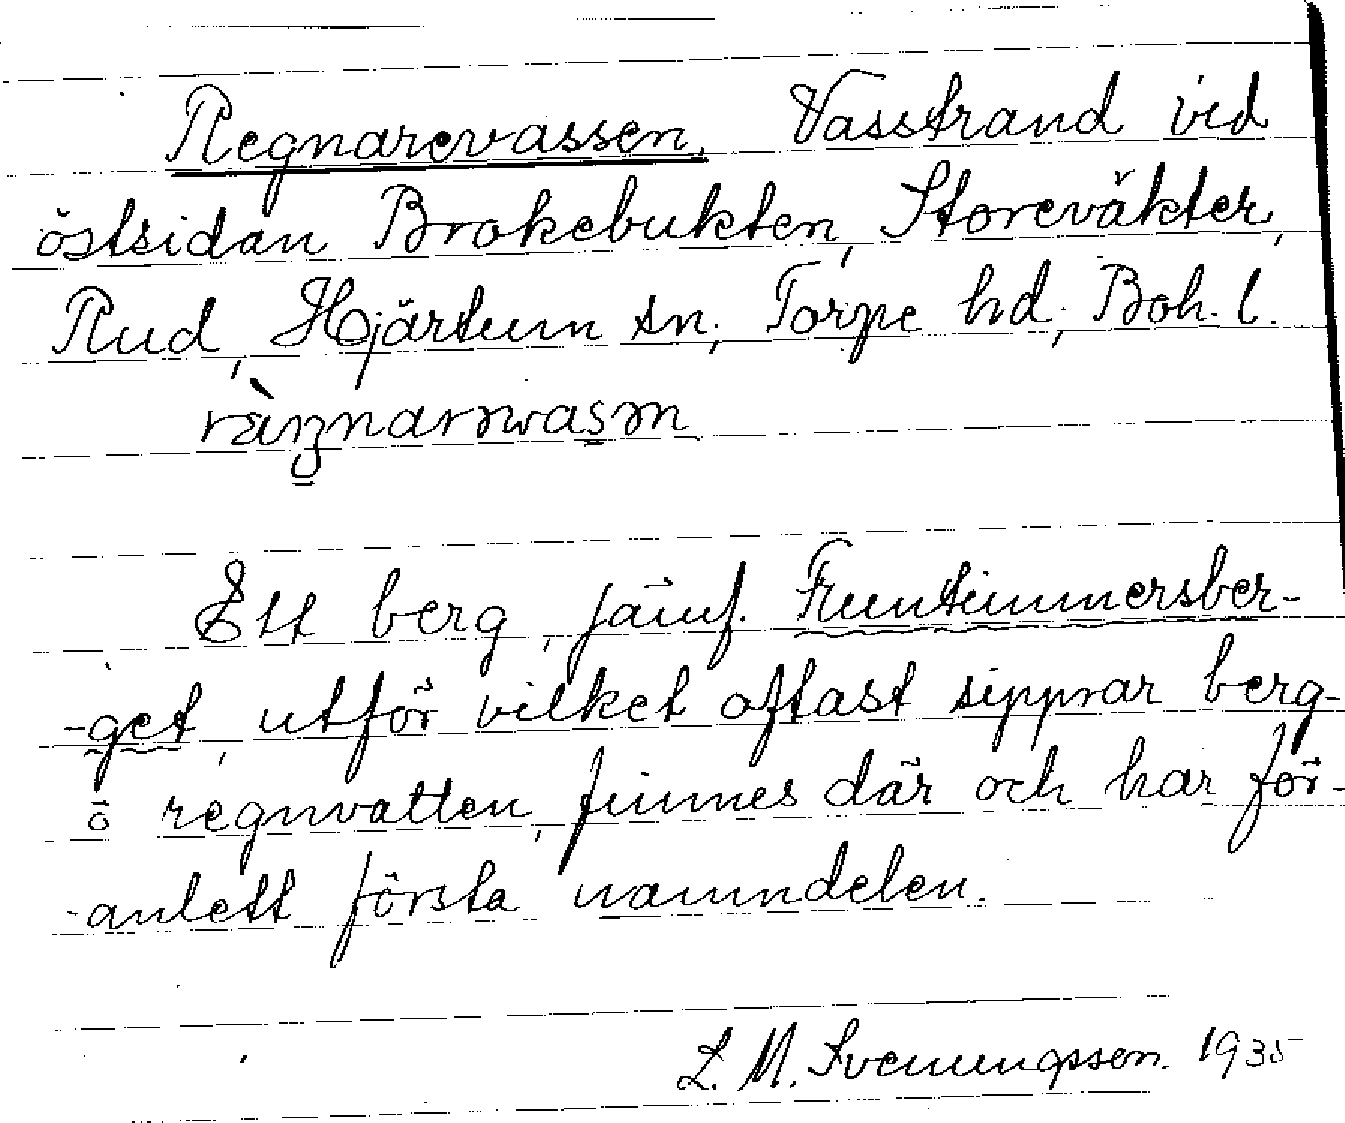 Regnarevassen, Vasstrand vid
östsidan Brokebukten, Storeväkter,
Rud, Hjärtum sn; Torpe hd; Boh. l.
Ett berg, jämf. Fruntimmersber-
-get, utför vilket oftast sipprar berg-
ö regnvatten, finnes där och har för-
-anlett första namndelen.
L. M. Svenungsson. 1935